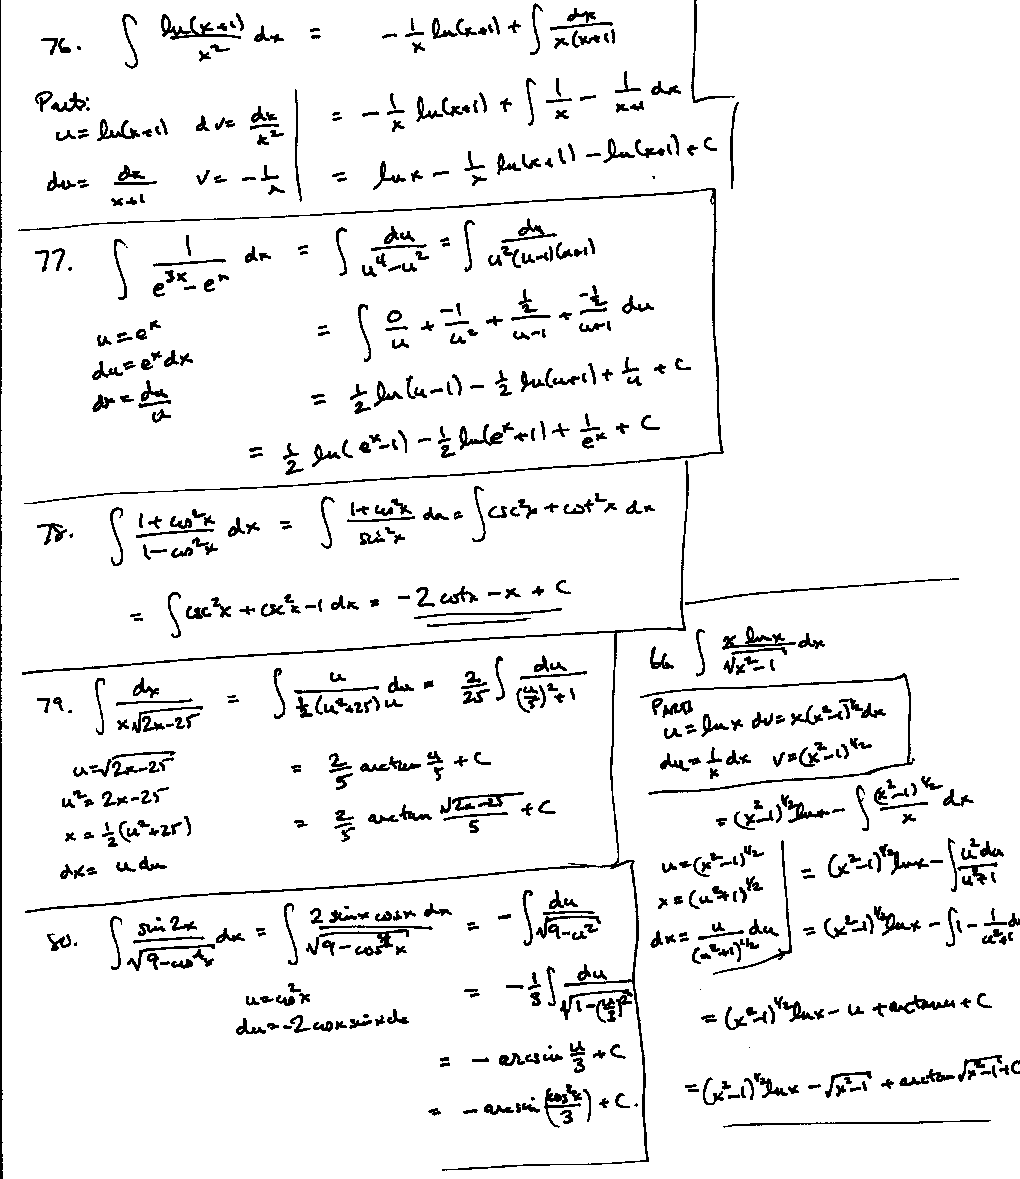 76. ∫ ln(x+1)/x² dx = -1/x ln(x+1) + ∫ dx/x(x+1)
Parts:
u = ln(x+1) dv = dx/x² = -1/x ln(x+1) + ∫ 1/x - 1/(x+1) dx
du = dx/(x+1) v = -1/x = ln x - 1/x ln(x+1) - ln(x+1) + C
77. ∫ 1/(e^3x - e^x) dx = ∫ du/(u⁴-u²) = ∫ du/u²(u-1)(u+1)
u = e^x = ∫ 0/u + -1/u² + ½/(u-1) + -½/(u+1) du
du = e^x dx
dx = du/u = ½ ln(u-1) - ½ ln(u+1) + 1/u + C
= ½ ln(e^x-1) - ½ ln(e^x+1) + 1/e^x + C
78. ∫ (1+cos²x)/(1-cos²x) dx = ∫ (1+cos²x)/sin²x dx = ∫ csc²x + cot²x dx
= ∫ csc²x + csc²x - 1 dx = -2 cot x - x + C
79. ∫ dx/(x√(2x-25)) = ∫ u/(½(u²+25)u) du = 2/25 ∫ du/((u/5)²+1)
u = √(2x-25) = 2/5 arctan u/5 + C
u² = 2x-25
x = ½(u²+25) = 2/5 arctan √(2x-25)/5 + C
dx = u du
80. ∫ sin 2x/√(9-cos⁴x) dx = ∫ 2 sin x cos x dx/√(9-cos⁴x) = -∫ du/√(9-u²)
u = cos²x = -1/3 ∫ du/√(1-(u/3)²)
du = -2 cos x sin x dx
= -arcsin u/3 + C
= -arcsin (cos²x/3) + C.
66. ∫ x ln x/√(x²-1) dx
Parts
u = ln x dv = x(x²-1)^-½ dx
du = 1/x dx v = (x²-1)^½
= (x²-1)^½ ln x - ∫ (x²-1)^½/x dx
u = (x²-1)^½ = (x²-1)^½ ln x - ∫ u² du/(u²+1)
x = (u²+1)^½
dx = u/(u²+1)^½ du = (x²-1)^½ ln x - ∫ 1 - 1/(u²+1) d
= (x²-1)^½ ln x - u + arctan u + C
= (x²-1)^½ ln x - √(x²-1) + arctan √(x²-1) + C